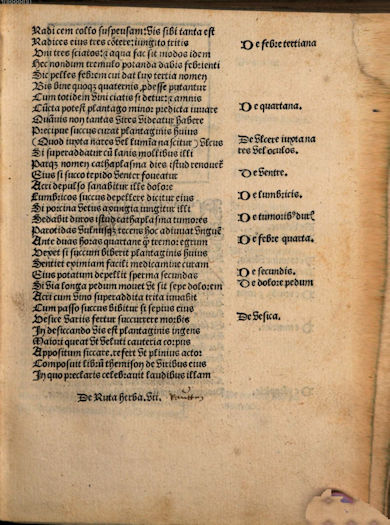 Radicem collo suspensam: Vis sibi tanta est
Radices eius tres cōtere: iungito tritis
Vni tres sciatos: ꝫ aqua fac sit modos idem
Hec nondum tremulo potanda dabis febrienti
Sic pelles febrem cui dat lux tertia nomen
Bis bine quoqꝫ quaternis ꝓdesse putantur
Cum totidem Vini ciatis si detur: ꝫ amnis
Cūcta potest plantago minor predicta iuuare
Quāuis non tantas Vires Videatur habere
Precipue succus curat plantaginis huius
(Quod iuxta nares Vel lumīa nascitur) Vlcus
Si superaddatur cū lanis mollibus illi
Parqꝫ nouem cathaplasma dies istud renouet
Eius si succo tepido Venter foueatur
Acri depulso sanabitur ille dolore
Lumbricos succus depellere dicitur eius
Si porcina Vetus axungia iungitur illi
Sedabit duros istud cathaplasma tumores
Parotidas Vulnusqꝫ recens hoc adiuuat Vnguē
Ante duas horas quartane qͣ tremor egrum
Vexet si succum biberit plantaginis huius
Sentiet eximiam facili medicamine curam
Eius potatum depellit sperma secundas
Si Via longa pedum mouet Vt sit sepe dolorem
Acri cum Vino superaddita trita iuuabit
Cum passo succus bibitur si sepius eius
Vesice Variis fertur succurrere morbis
In desiccando Vis est plantaginis ingens
Maiori queat Vt Veluti cauteria corpus
Appositum siccare, refert Vt plinius actor
Composuit librū themison de Viribus eius
In quo preclaris celebrauit laudibus illam
De Ruta herba. Vii.
De febre tertiana
De quartana.
De Vlcere iuxta na
res Vel oculos.
De Ventre.
De lumbricis.
De tumoribꝰ duris
De febre quarta.
De secundis.
De dolore pedum
De Vesica.